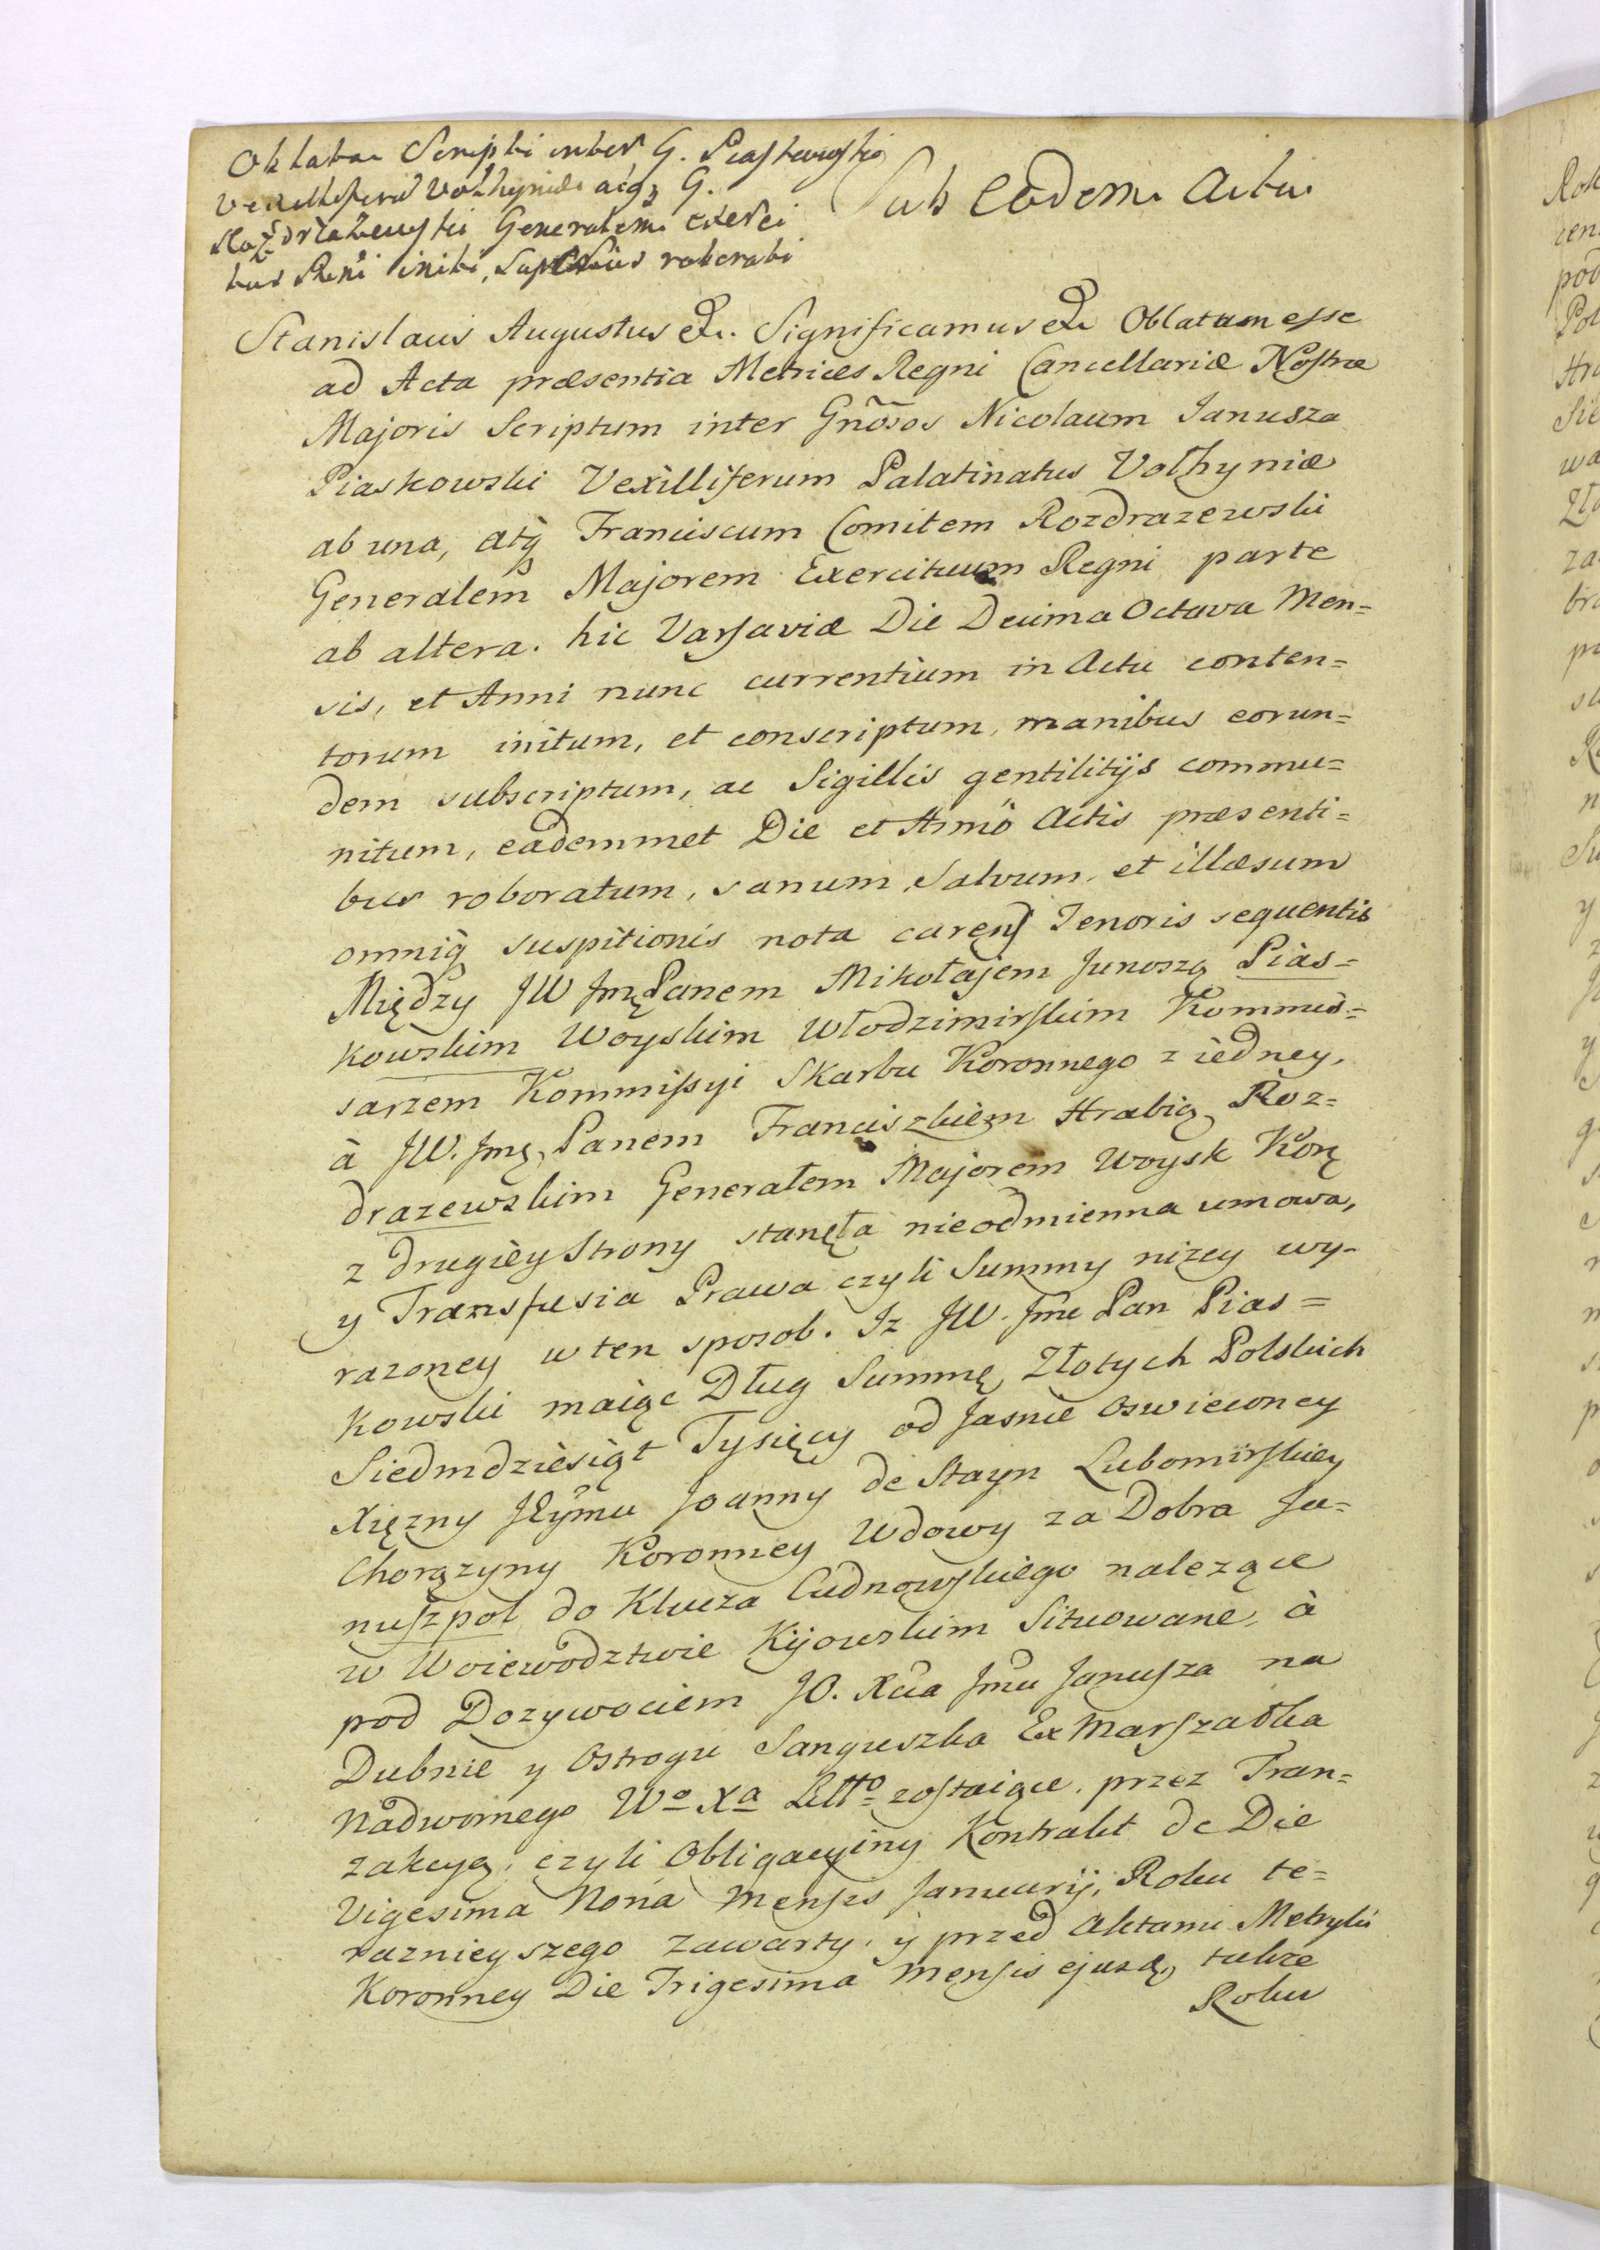 Oblatae Scripti inter G. Piaskowski
Vexilliferu Volhyniae atq; G.
Rozdrażewski Generalem exerci
tus Regni initi, superius roborati
Sub Eodem Actu
Stanislaus Augustus &c. Significamus &c Oblatum esse
ad Acta præsentia Metrices Regni Cancellariæ Nostræ
Majoris Scriptum inter Gnosos Nicolaum Janusza
Piaskowski Vexilliferum Palatinatus Volhyniæ
ab una, atq Franciscum Comitem Rozdrazewski
Generalem Majorem Exercituum Regni parte
ab altera. hic Varsaviæ Die Decima Octava Men=
sis, et Anni nunc currentium in Actu conten=
torum initum, et conscriptum, manibus eorun=
dem subscriptum, ac Sigillis gentilitijs commu=
nitum, eâdemmet Die et Anno Actis præsenti=
bus roboratum, sanum, salvum, et illæsum
omniq suspitionis nota carens Tenoris sequentis
Między JW Jmę Panem Mikołajem Junoszą Pias=
kowskim Woyskim Włodzimirskim Kommis=
sarzem Kommissyi Skarbu Koronnego z iedney,
à JW. Jmę, Panem Franciszkiem Hrabią Roz=
drazewskim Generałem Majorem Woysk Kor
z drugiey Strony stanęła nieodmienna umowa,
y Transfusia Prawa czyli Summy nizey wy-
razoney w ten sposob. Iz JW. Jmc Pan Pias=
kowski maiąc Dług Summę Złotych Polskich
Siedmdziesiąt Tysięcy od Jasnie Oswieconey
Xięzny JEymu Joanny de Stayn Lubomirskiey
Chorązyny Koronney Wdowy za Dobra Ja=
nuszpol do Klucza Cudnowskiego nalezące
w Woiewodztwie Kijowskim Situowane, à
pod Dozywociem JO. Xcia Jmci Janusza na
Dubnie y Ostrogu Sanguszka Ex Marszałka
Nadwornego Wo Xa Litto zostaiące, przez Tran=
zakcyę, czyli Obligacyiny Kontrakt de Die
Vigesima Nona Mensis Januarij, Roku te=
raznieyszego zawarty, y przed Aktami Metryki
Koronney Die Trigesima Mensis ejusd, tukze
Roku